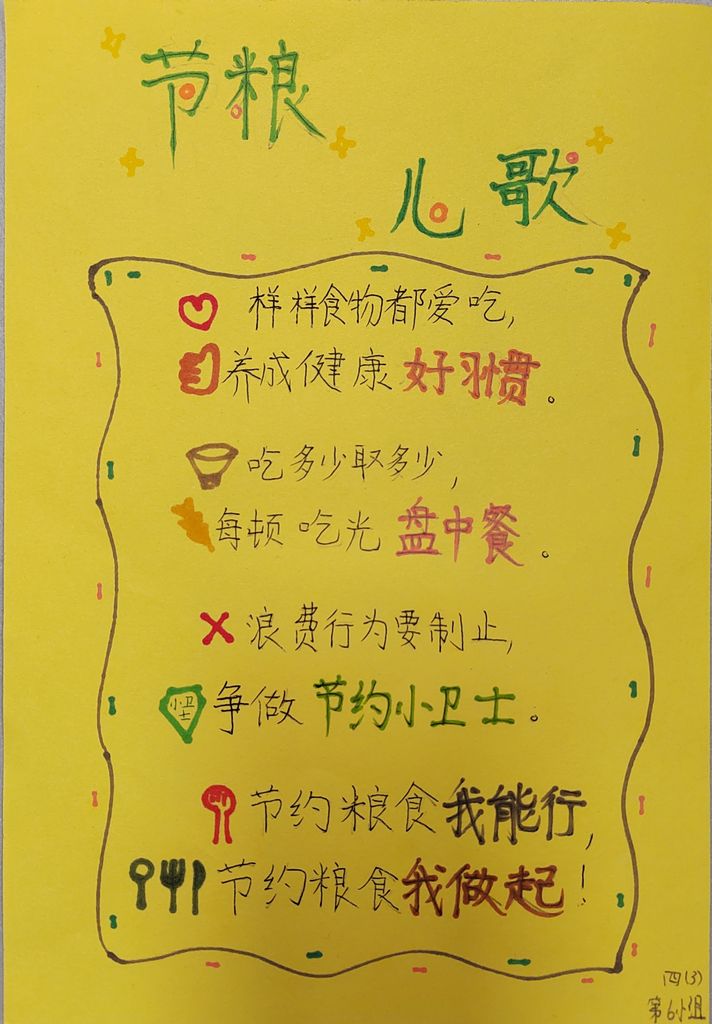 节粮
儿歌
样样食物都爱吃,
养成健康好习惯。
吃多少取多少,
每顿吃光盘中餐。
浪费行为要制止,
小卫士
争做节约小卫士。
节约粮食我能行,
节约粮食我做起!
四(3)
第6小组